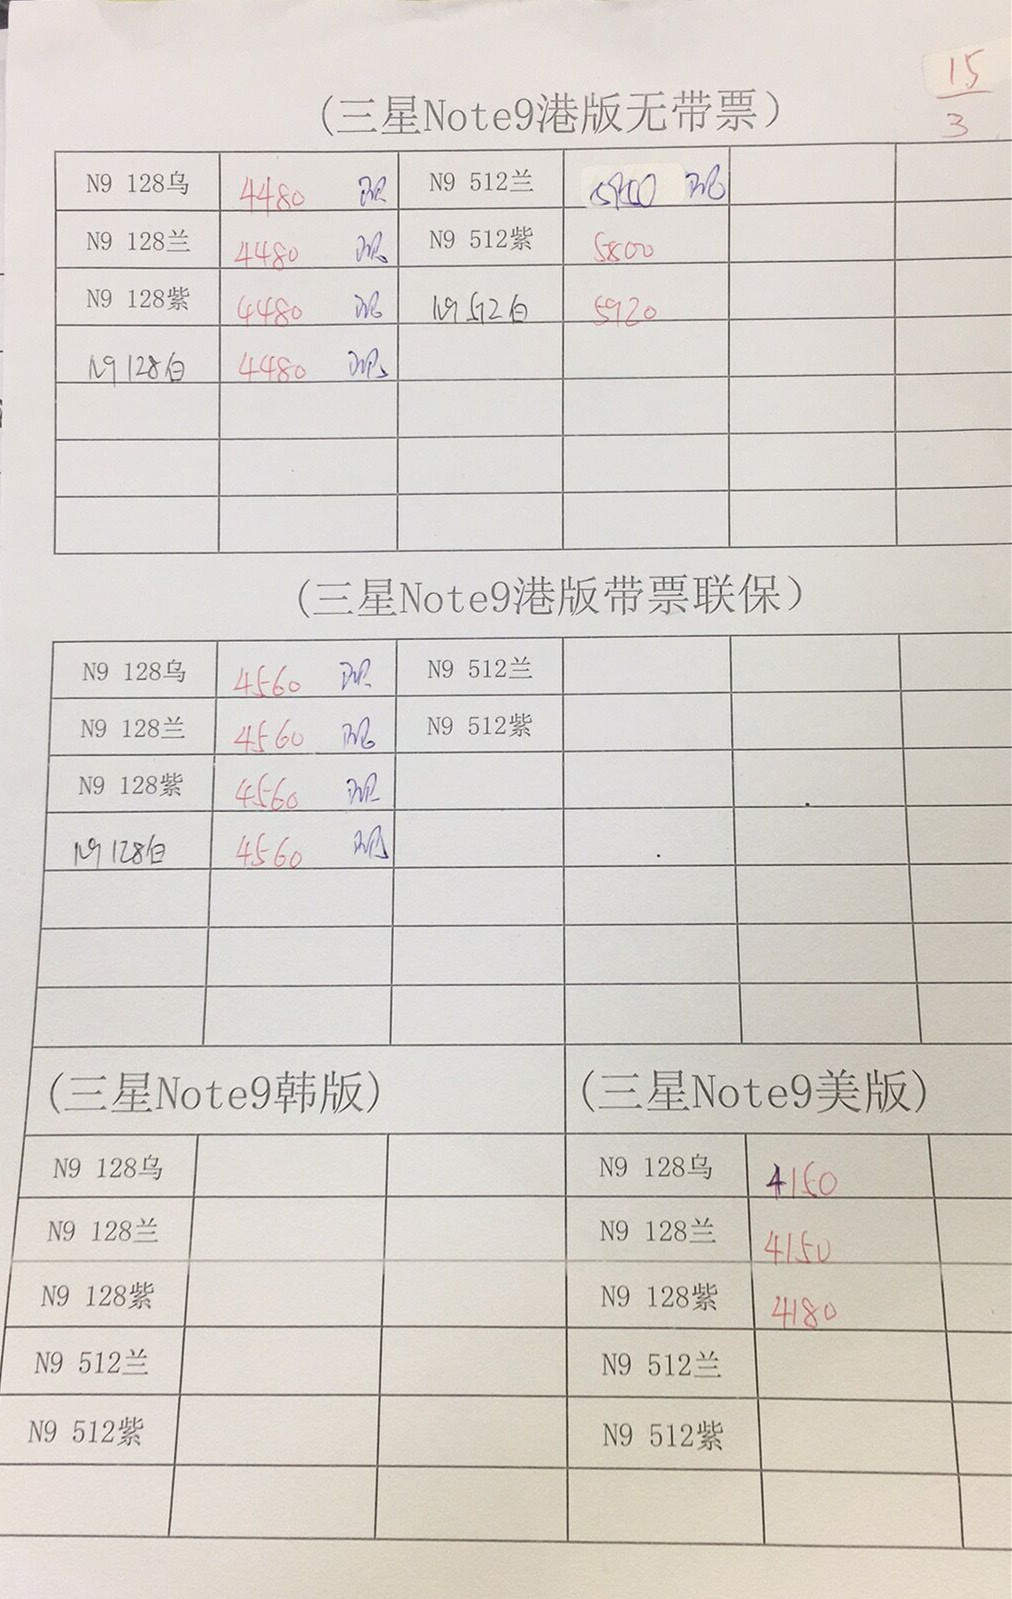 15
3
(三星Note9港版无带票)
N9 128乌 4480 N9 512兰
N9 128兰 4480 N9 512紫 5800
N9 128紫 4480 N9 512白 5920
N9 128白 4480
(三星Note9港版带票联保)
N9 128乌 4560 N9 512兰
N9 128兰 4560 N9 512紫
N9 128紫 4560
N9 128白 4560
(三星Note9韩版) (三星Note9美版)
N9 128乌 N9 128乌 4150
N9 128兰 N9 128兰 4150
N9 128紫 N9 128紫 4180
N9 512兰 N9 512兰
N9 512紫 N9 512紫